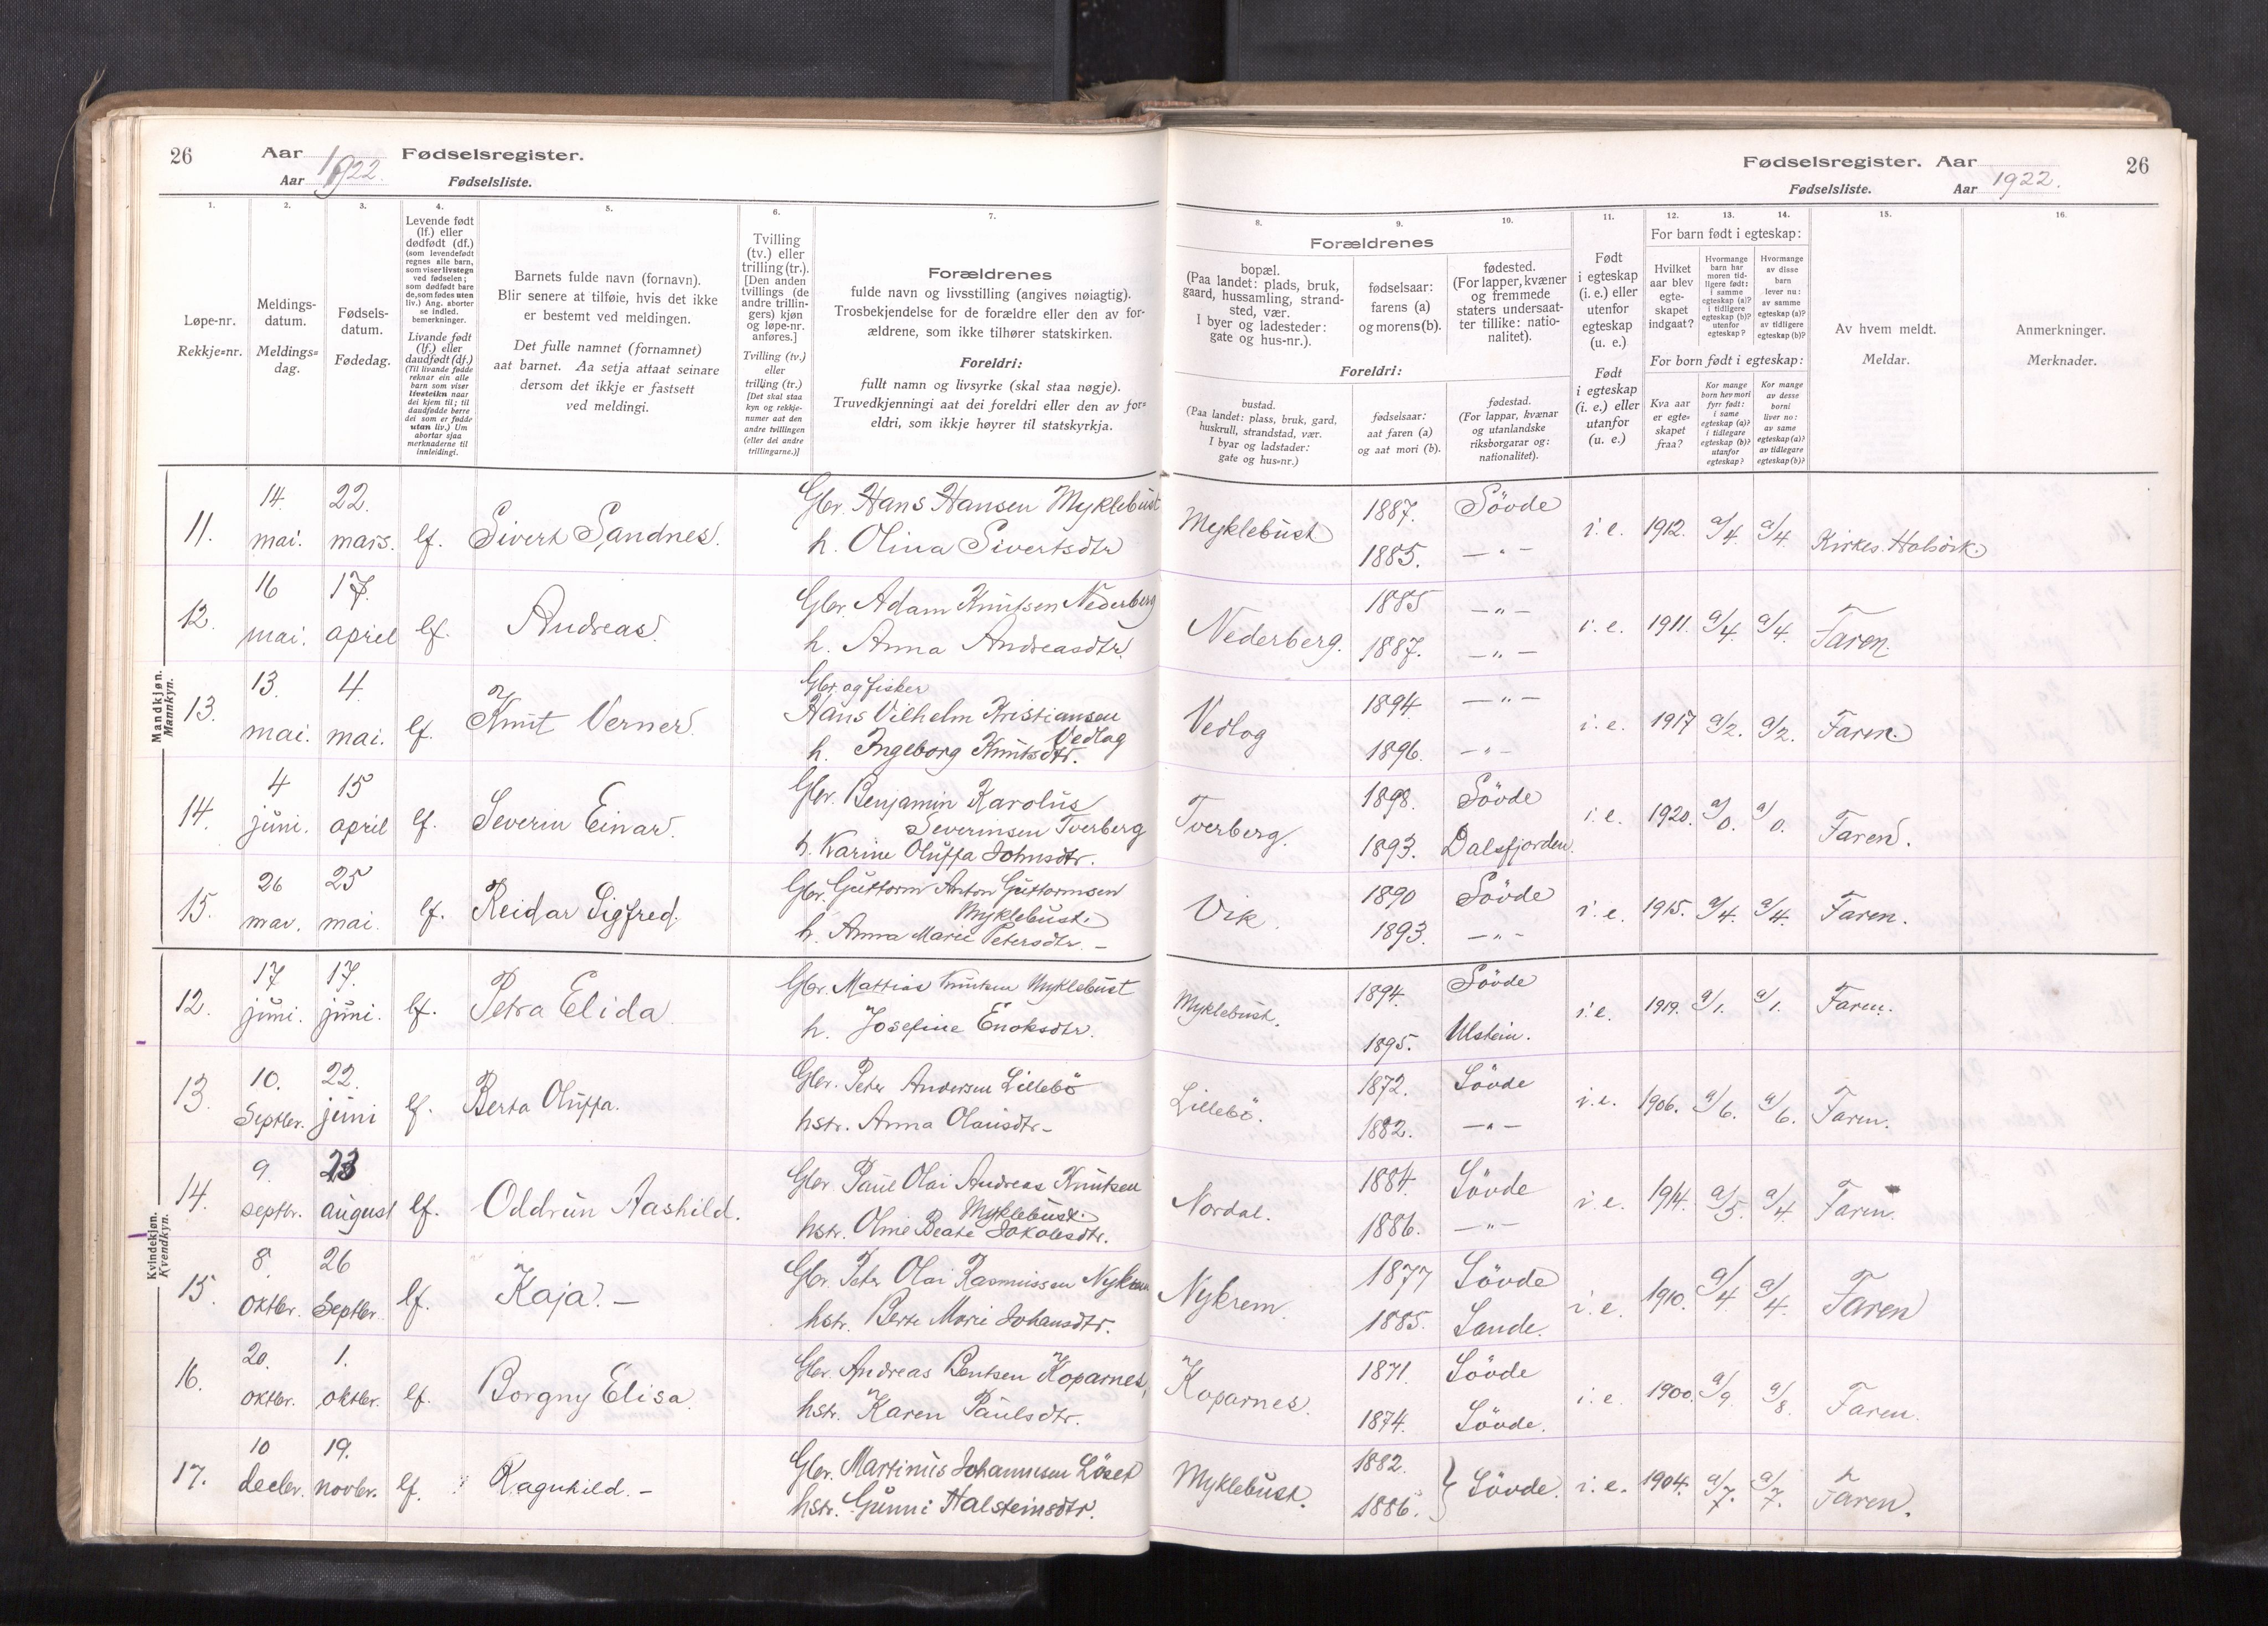 26
Aar
Fødselsregister.
Aar
1922.
Fødselsliste.
Fødselsregister. Aar
26
Fødselsliste.
Aar
1922.
1.
2.
3.
4.
5.
6.
7.
8.
9.
10.
11.
12.
13.
14.
15.
16.
Løpe-nr.
Rekkje=nr.
Meldings-
datum.
Meldings=
dag.
Fødsels-
datum.
Fødedag.
Levende født
(lf.) eller
dødfødt (df.)
(som levendefødt
regnes alle barn,
som viser livstegn
ved fødselen;
som dødfødt bare
de, som fødes uten
liv.) Ang. aborter
se indled.
bemerkninger.
Livande født
(lf.) eller
daudfødt (df.)
(Til livande fødde
reknar ein alle
barn som viser
livsteikn naar
dei kjem til; til
daudfødde berre
dei som er fødde
utan liv.) Um
abortar sjaa
merknaderne til
innleidingi.
Barnets fulde navn (fornavn).
Blir senere at tilføie, hvis det ikke
er bestemt ved meldingen.
Det fulle namnet (fornamnet)
aat barnet. Aa setja attaat seinare
dersom det ikkje er fastsett
ved meldingi.
Tvilling
(tv.) eller
trilling (tr.).
[Den anden
tvillings (de
andre trillin-
gers) kjøn
og løpe-nr.
anføres.]
Tvilling (tv.)
eller
trilling (tr.)
[Det skal staa
kyn og rekkje-
numer aat den
andre tvillingen
(eller dei andre
trillingarne.)]
Forældrenes
fulde navn og livsstilling (angives nøiagtig).
Trosbekjendelse for de forældre eller den av for-
ældrene, som ikke tilhører statskirken.
Foreldri:
fullt namn og livsyrke (skal staa nøgje).
Truvedkjenningi aat dei foreldri eller den av for=
eldri, som ikkje høyrer til statskyrkja.
Forældrenes
bopæl.
(Paa landet: plads, bruk,
gaard, hussamling, strand-
sted, vær.
I byer og ladesteder:
gate og hus-nr.).
fødselsaar:
farens (a)
og morens (b).
fødested.
(For lapper, kvæner
og fremmede
staters undersaat-
ter tillike: natio-
nalitet).
Foreldri:
bustad.
(Paa landet: plass, bruk, gard,
huskrull, strandstad, vær.
I byar og ladstader:
gate og hus=nr.)
fødselsaar:
aat faren (a)
og aat mori (b).
fødestad.
(For lappar, kvænar
og utanlandske
riksborgarar og:
nationalitet).
Født
i egteskap
(i. e.) eller
utenfor
egteskap
(u. e.)
Født
i egteskap
(i. e.) eller
utanfor
(u. e.)
For barn født i egteskap:
Hvilket
aar blev
egte-
skapet
indgaat?
Hvormange
barn har
moren tid-
ligere født:
i samme
egteskap (a)?
i tidligere
egteskap (b)?
utenfor
egteskap?
Hvormange
av disse
barn
lever nu:
av samme
egteskap (a)?
av tidligere
egteskap (b)?
For born født i egteskap:
Kva aar
er egte=
skapet
fraa?
Kor mange
born hev mori
fyrr født:
i same
egteskap (a)?
i tidlegare
egteskap (b)?
utanfor
egteskap?
Kor mange
av desse
borni
liver no:
av same
egteskap (a)?
av tidlegare
egteskap (b)?
Av hvem meldt.
Meldar.
Anmerkninger.
Merknader.
Mandkjøn.
Mannkyn.
11. 14. mai. 22. mars. lf. Sivert Sandnes. Gbr. Hans Hansen Myklebust
h. Olina Sivertsdtr
Myklebust 1887. Søvde i. e. 1912. a/4. a/4. Kirkes.
1885. — " —
12. 16 mai. 17. april lf. Andreas. Gbr. Adam Knutsen Nederberg
h. Anna Andreasdtr.
Nederberg. 1885 — " — i. e. 1911. a/4. a/4. Faren.
1887. — " —
13. 13. mai. 4. mai. lf. Knut Verner. Gbr. og fisker
Hans Vilhelm Kristiansen
Vedlog
h. Ingeborg Knutsdtr.
Vedlog 1894. — " — i. e. 1917 a/2. a/2. Faren.
1896. — " —
14. 4 juni. 15 april lf. Severin Einar. Gbr. Benjamin Karolus
Severinsen Tverberg
h. Karine Oluffa Johnsdtr.
Tverberg. 1898. Søvde i. e. 1920. a/0. a/0. Faren.
1893. Dalsfjorden.
15. 26 mai. 25 mai. lf. Reidar Sigfred. Gbr. Guttorm Anton Guttormsen
Myklebust.
h. Anna Marie Petersdtr. –
Vik. 1890 Søvde i. e. 1915. a/4. a/4. Faren.
1893. — " —
Kvindekjøn.
Kvendkyn.
12. 17 juni. 17. juni. lf. Petra Elida. Gbr. Mattias Knutsen Myklebust
h. Josefine Enoksdtr.
Myklebust. 1894. Søvde i. e. 1919. a/1. a/1. Faren.
1895. Ulstein.
13. 10. Septbr. 22. juni lf. Berta Oluffa. Gbr. Peter Andersen Lillebö
hstr. Anna Olausdtr –
Lillebö. 1872. Søvde i. e. 1906. a/6. a/6. Faren.
1882. — " —
14. 9. septbr. 23 august lf. Oddrun Aashild. Gbr. Paul Olai Andreas Knutsen
Myklebust.
hstr. Oline Beate Jakobsdtr.
Nordal. 1884. Søvde i. e. 1914. a/5. a/4 Faren.
1886. — " —
15. 8. oktbr. 26 Septbr. lf. Kaja. – Gbr. Peter Olai Rasmussen Nykrem
hstr. Berte Marie Johansdtr.
Nykrem. 1877 Søvde i. e. 1910. a/4 a/4. Faren
1885. Sande.
16. 20. oktbr. 1. oktbr. lf. Borgny Elisa. Gbr. Andreas Bentsen Koparnes,
hstr. Karen Paulsdtr.
Koparnes. 1871. Søvde i. e. 1900. a/9. a/8. Faren.
1874. Søvde.
17. 10 decbr. 19. novbr. lf. Ragnhild. – Gbr. Martinus Johannesen Löset
hstr. Gunni Halsteinsdtr.
Myklebust. 1882. Søvde. i. e. 1904. a/7. a/7. Faren.
1886.